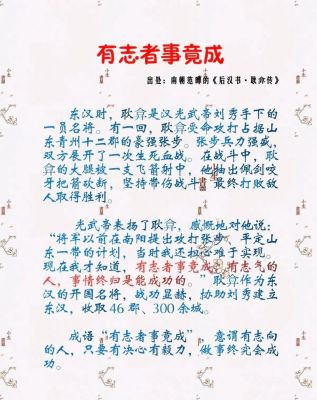 有志者事竟成
出处：南朝范晔的《后汉书·耿弇传》
东汉时，耿弇是汉光武帝刘秀手下的
一员名将。有一回，耿弇受命攻打占据山
东青州十二郡的豪强张步。张步兵力强盛，
双方展开了一次生死血战。在战斗中，耿
弇的大腿被一支飞箭射中，他抽出佩剑咬
牙把箭砍断，坚持带伤战斗，最终打败敌
人取得胜利。
光武帝表扬了耿弇，感慨地对他说：
“将军以前在南阳提出攻打张步，平定山
东一带的计划，当时我还担心难于实现。
现在我才知道，有志者事竟成。有志气的
人，事情终归是能成功的。”耿弇作为东
汉的开国名将，战功显赫，协助刘秀建立
东汉，收取46郡、300余城。
成语“有志者事竟成”，意谓有志向
的人，只要有决心有毅力，做事终究会成
功。